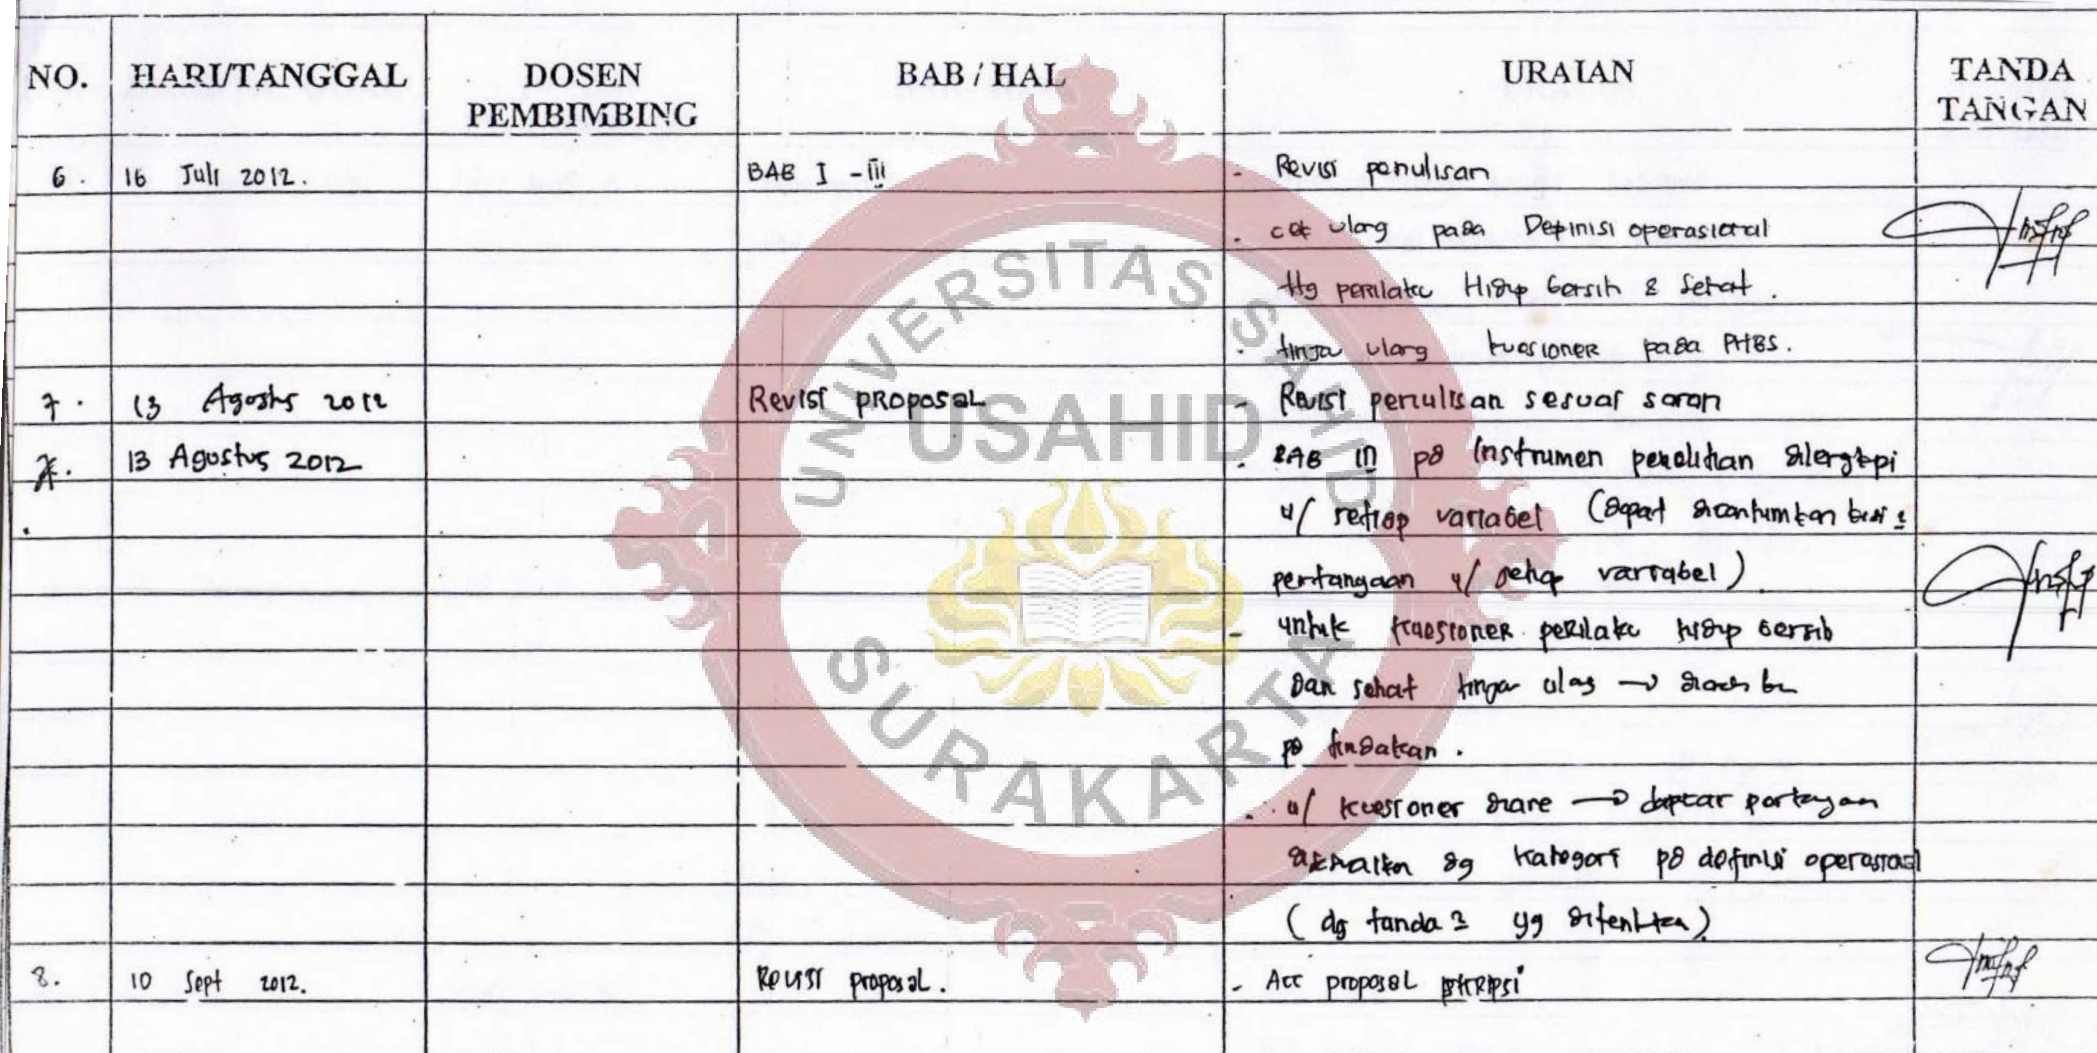 NO. HARI/TANGGAL DOSEN PEMBIMBING BAB / HAL URAIAN TANDA TANGAN
6. 16 Juli 2012. BAB I - III - Revisi penulisan
- cek ulang pada Definisi operasional
ttg perilaku Hidup bersih & sehat.
- tinjau ulang kuesioner pada PHBS.
7. 13 Agosts 2012 Revisi proposal - Revisi penulisan sesuai saran
7. 13 Agustus 2012 - BAB III pd Instrumen penelitian dilengkapi
u/ setiap variabel (dapat dicantumkan
pertanyaan u/ setiap variabel)
- untuk kuesioner perilaku hidup bersih
dan sehat tinjau ulang →
pd tindakan.
- u/ kuesioner diare → daptar pertanyaan
dg kategori pd definisi operasional
(dg tanda 2 yg)
8. 10 Sept 2012. Revisi proposal. - Acc proposal skripsi
UNIVERSITAS SAHID
USAHID
SURAKARTA